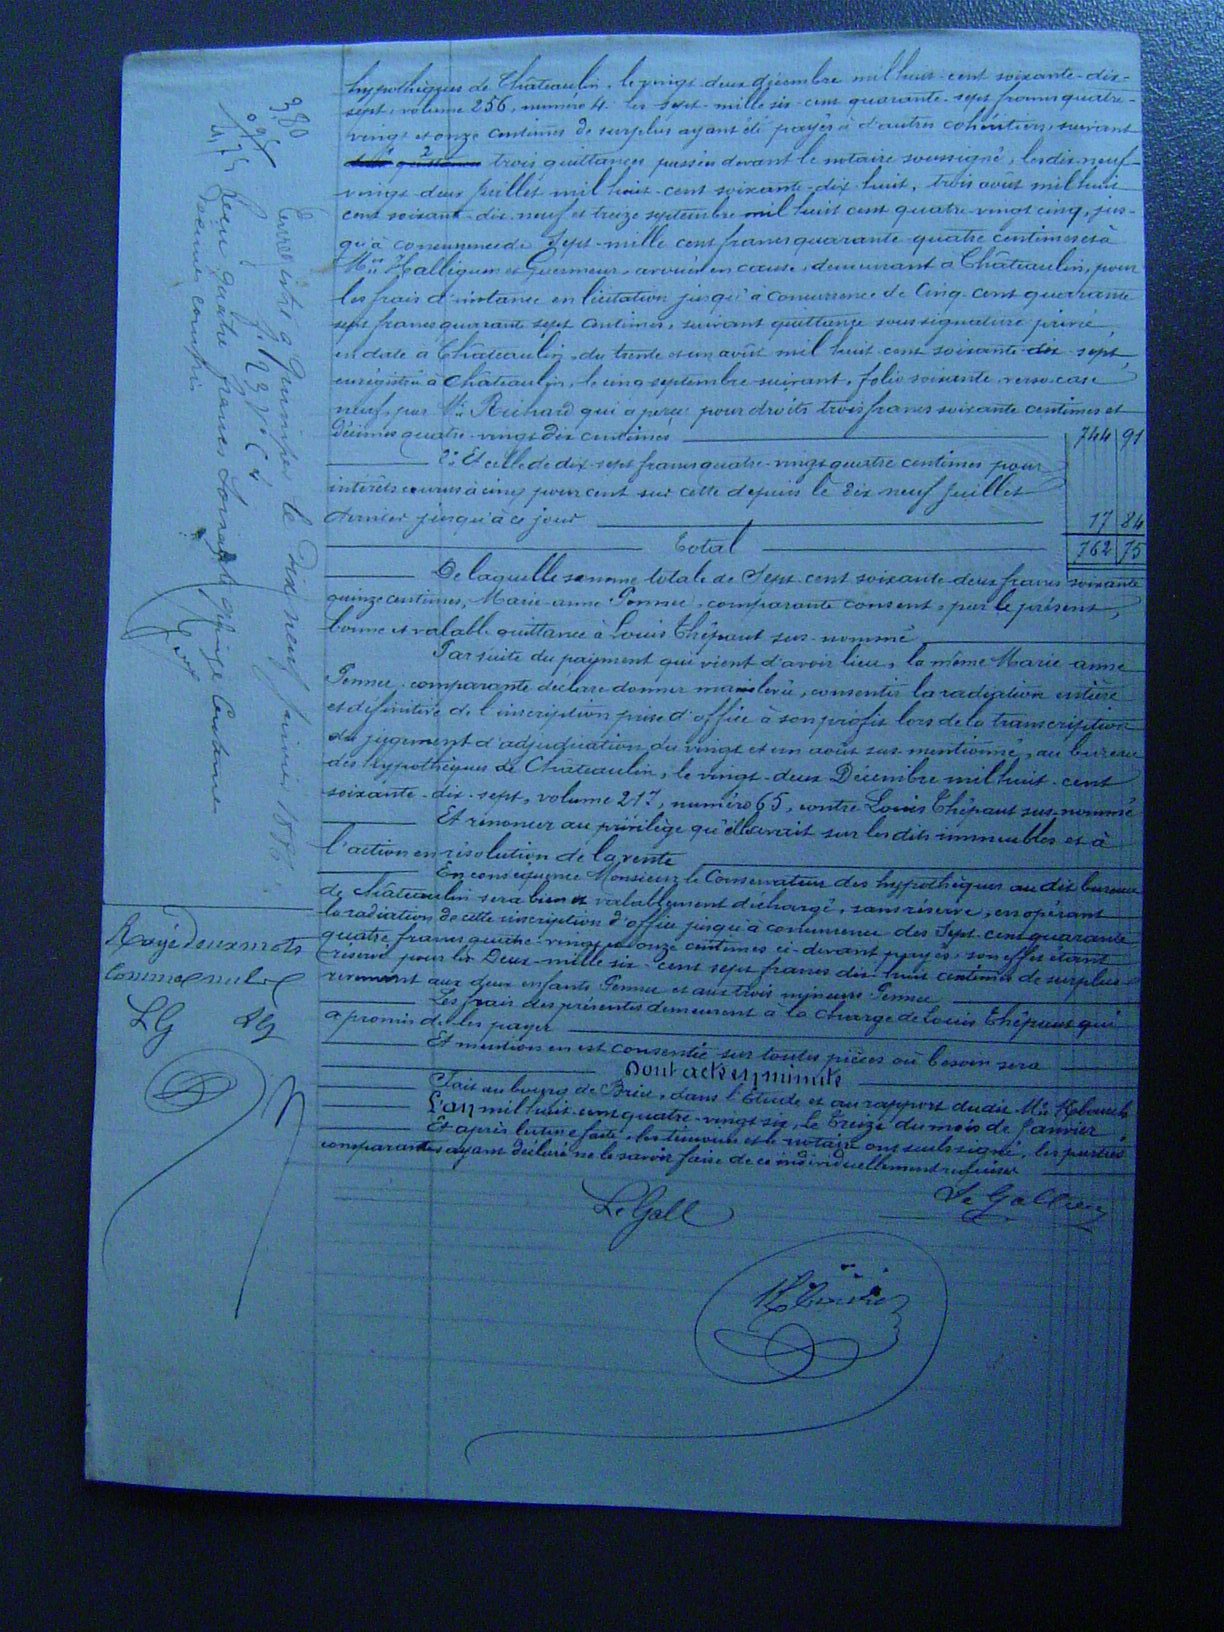 hypothèques de Châteaulin, le vingt-deux décembre mil huit-cent soixante-dix-
sept, volume 256, numéro 4. les sept-mille six-cent quarante-sept francs quatre-
vingt et onze centimes de surplus ayant été payés à d'autres cohéritiers, suivant
trois quittances passées devant le notaire soussigné, les dix-neuf
vingt-deux juillet mil huit-cent soixante-dix-huit, trois août mil huit
cent soixante-dix-neuf et treize septembre mil huit cent quatre-vingt cinq, jus-
qu'à concurrence de sept-mille cent francs quarante-quatre centimes et à
Mes Halléguen et Guermeur, avoués en cause, demeurant à Châteaulin, pour
les frais d'instance en licitation jusqu'à concurrence de Cinq-cent quarante
sept francs quarante sept centimes, suivant quittance sous signature privée,
en date à Châteaulin, du trente et un août mil huit-cent soixante-dix-sept,
enregistrée à Châteaulin, le cinq septembre suivant, folio soixante, verso case
neuf, par Mr Richard qui a perçu pour droits trois francs soixante centimes et
décimes quatre-vingt dix centimes 744 91
2° Et celle de dix-sept francs quatre-vingt quatre centimes pour
intérêts courus à cinq pour cent sur cette depuis le dix neuf juillet
dernier jusqu'à ce jour 17 84
Total 762 75
De laquelle somme totale de Sept-cent soixante-deux francs soixante
quinze centimes, Marie-anne Pennec, comparante consent, par le présent,
bonne et valable quittance à Louis Thépaut sus-nommé
Par suite du payment qui vient d'avoir lieu, la même Marie-anne
Pennec comparante déclare donner mainlevée, consentir la radiation entière
et définitive de l'inscription prise d'office à son profit lors de la transcription
du jugement d'adjudication du vingt et un août sus-mentionné, au bureau
des hypothèques de Châteaulin, le vingt-deux Décembre mil huit-cent
soixante-dix-sept, volume 217, numéro 65, contre Louis Thépaut sus-nommé
Et renoncer au privilège qu'elle avait sur les dits immeubles et à
l'action en résolution de la vente
En conséquence Monsieur le Conservateur des hypothèques au dit bureau
de Châteaulin sera bien et valablement déchargé, sans réserve, en opérant
la radiation de cette inscription d'office jusqu'à concurrence des Sept-cent quarante
quatre francs quatre-vingt et onze centimes ci-devant payés, son effet étant
réservé pour les Deux-mille six-cent sept francs dix-huit centimes de surplus
revenant aux deux enfants Pennec et aux trois mineurs Pennec
Les frais des présentes demeurent à la charge de Louis Thépaut qui
a promis de les payer
Et mention en est consentie sur toutes pièces où besoin sera
Dont acte en minute
Fait au bourg de Briec, dans l'Etude et au rapport du dit Me
L'an mil huit-cent quatre-vingt-six, le treize du mois de Janvier
Et après lecture faite, les témoins et le notaire ont seuls signé, les parties
comparantes ayant déclaré ne le savoir faire de ce individuellement requises
Le Gall
Le Gallic
Rayé deux mots
comme nuls
LG
LG
Enregistré à Quimper le Dix neuf janvier 1886
Reçu quatre francs soixante quinze Centimes
Décimes compris
380